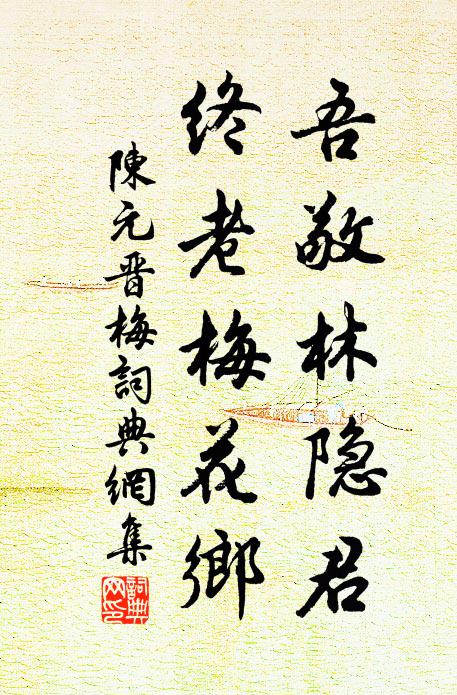 吾敬林隐君
终老梅花鄉
陳元晋梅詞典網集
詞典网印